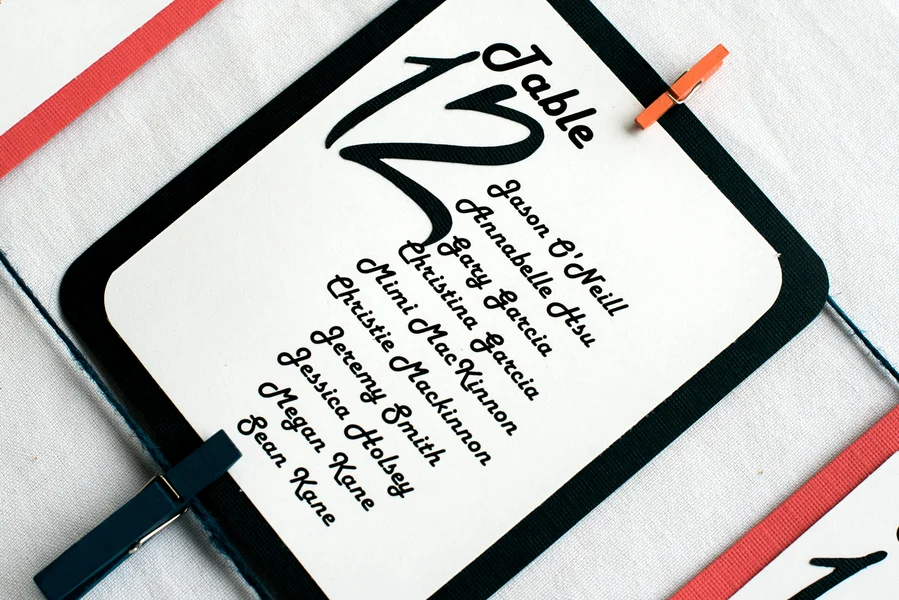 Table
12
Jason O'Neill
Annabelle Hsu
Gary Garcia
Christina Garcia
Mimi MacKinnon
Christie Mackinnon
Jeremy Smith
Jessica Holsey
Megan Kane
Sean Kane
1